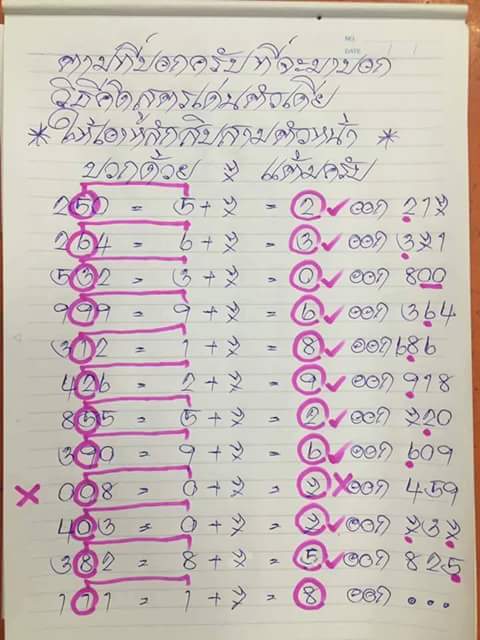 NO.
DATE
ตามที่บอกครับที่จะมาบอก
วิธีคิดสูตรเด่นตัวเดีย
* ให้เอาหลักสิบสามตัวหน้า *
บวกด้วย 7 แต้มครับ
250 = 5+7 = 2 ✓ ออก 217
264 = 6+7 = 3 ✓ ออก 371
532 = 3+7 = 0 ✓ ออก 800
999 = 9+7 = 6 ✓ ออก 364
312 = 1+7 = 8 ✓ ออก 686
426 = 2+7 = 9 ✓ ออก 918
855 = 5+7 = 2 ✓ ออก 720
390 = 9+7 = 6 ✓ ออก 609
× 008 = 0+7 = 7 × ออก 459
403 = 0+7 = 7 ✓ ออก 737
382 = 8+7 = 5 ✓ ออก 825
111 = 1+7 = 8 ออก ...